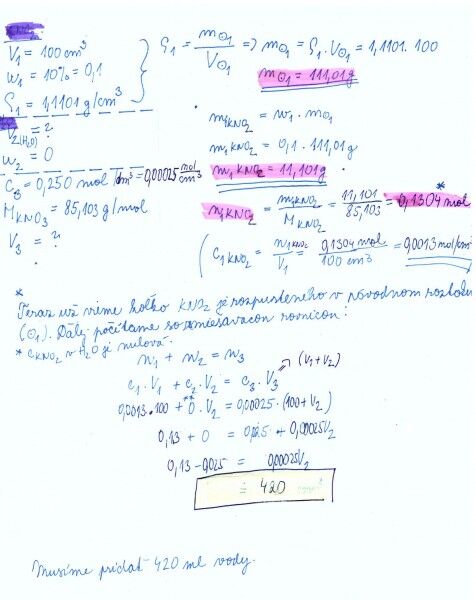 V₁ = 100 cm³
w₁ = 10% = 0,1
ρ₁ = 1,1101 g/cm³
V₂(H₂O) = ?
w₂ = 0
c₃ = 0,250 mol/dm³ = 0,00025 mol/cm³
M KNO₃ = 85,103 g/mol
V₃ = ?
ρ₁ = m⊙₁ / V⊙₁ => m⊙₁ = ρ₁ . V⊙₁ = 1,1101 . 100
m⊙₁ = 111,01 g
m₁KNO₂ = w₁ . m⊙₁
m₁KNO₂ = 0,1 . 111,01g
m₁KNO₂ = 11,101g
n₁KNO₂ = m₁KNO₂ / M KNO₂ = 11,101 / 85,103 = 0,1304 mol *
( c₁KNO₂ = n₁KNO₂ / V₁ = 0,1304 mol / 100 cm³ = 0,0013 mol/cm³
*
Teraz už vieme koľko KNO₂ je rozpusteného v pôvodnom roztoku
(⊙₁). Ďalej počítame so zmiešavacou rovnicou:
* c KNO₂ v H₂O je nulová.
n₁ + n₂ = n₃
c₁ . V₁ + c₂ . V₂ = c₃ . V₃ → (V₁ + V₂)
0,0013 . 100 + 0** . V₂ = 0,00025 . (100 + V₂)
0,13 + 0 = 0,025 + 0,00025V₂
0,13 - 0,025 = 0,00025V₂
= 420
Musíme pridať 420 ml vody.